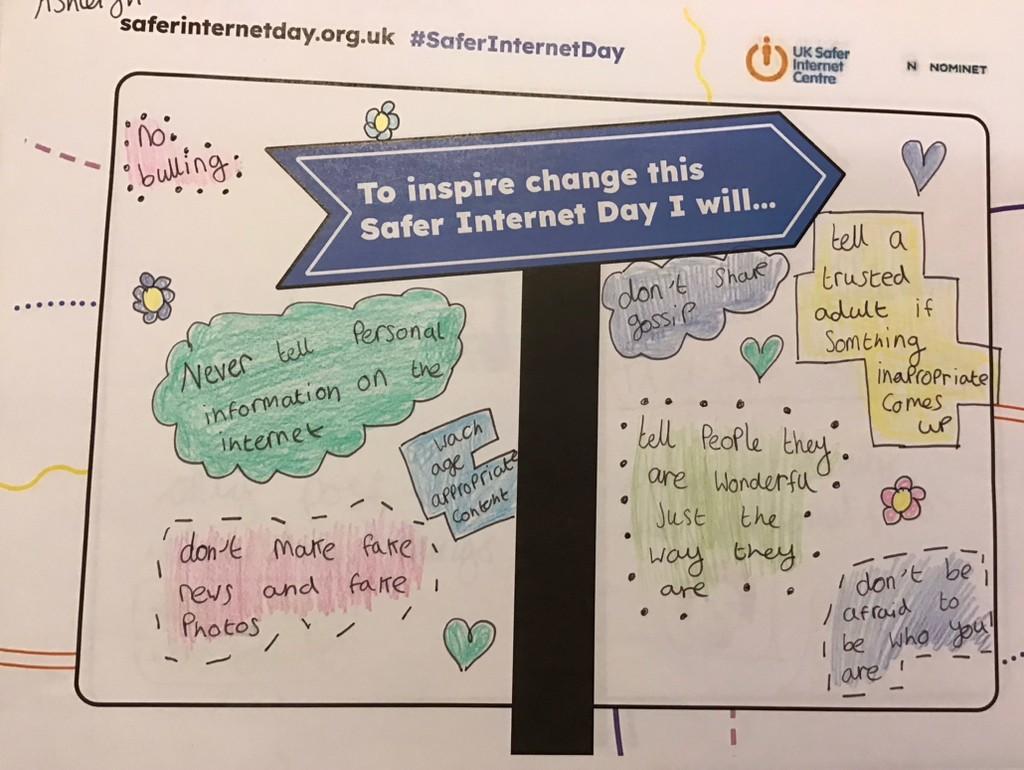 Ashleigh
saferinternetday.org.uk #SaferInternetDay
UK Safer
Internet
Centre
N NOMINET
no
bulling
To inspire change this
Safer Internet Day I will...
Never tell Personal
information on the
internet
wach
age
appropriate
Content
don't make fake
news and fake
Photos
don't share
gossip
tell a
trusted
adult if
Somthing
inapropriate
Comes
up
tell People they
are Wonderful
Just the
way they
are
don't be
afraid to
be who you
are